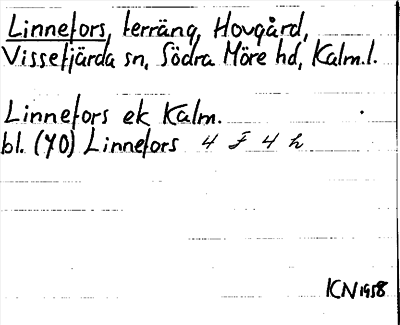 Linnefors, terräng, Hovgård,
Vissefjärda sn, Södra Möre hd, Kalm.l.
Linnefors ek Kalm.
bl. (70) Linnefors 4 F 4 h
KN 1958